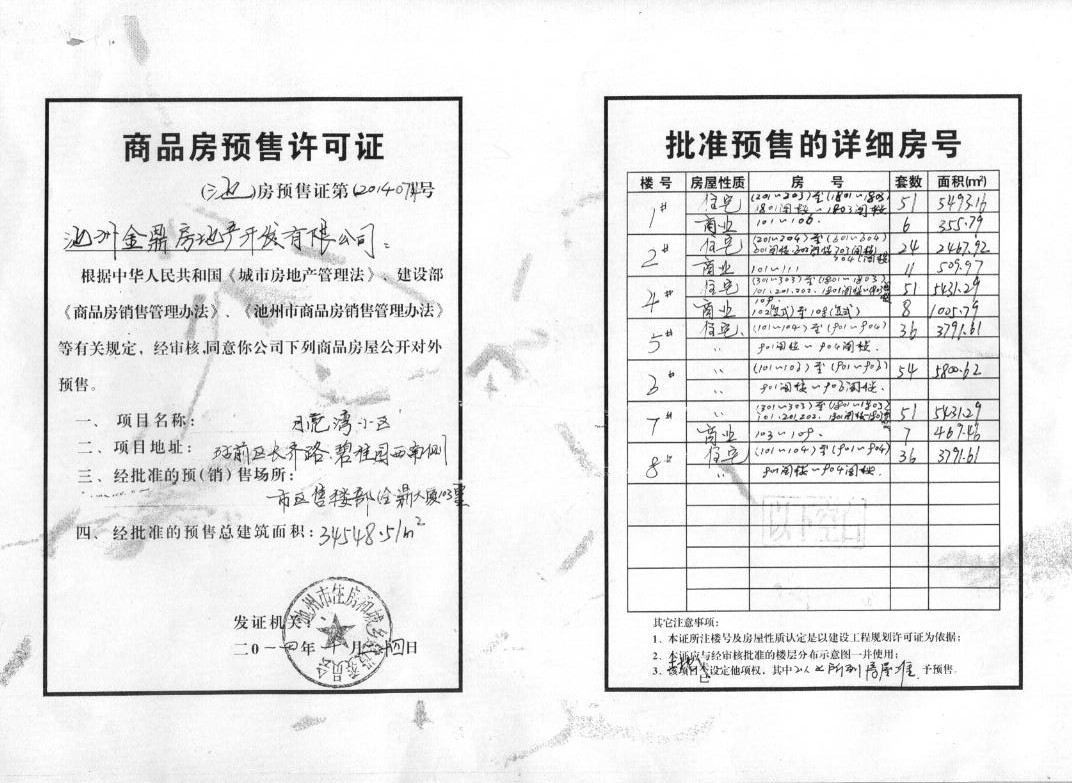 商品房预售许可证
(池)房预售证第(2014074)号
池州金鼎房地产开发有限公司：
根据中华人民共和国《城市房地产管理法》、建设部
《商品房销售管理办法》、《池州市商品房销售管理办法》
等有关规定，经审核,同意你公司下列商品房屋公开对外
预售。
一、项目名称：湾小区
二、项目地址：站前区长齐路、碧桂园西南侧
三、经批准的预(销)售场所：
市区售楼部金鼎大厦103
四、经批准的预售总建筑面积：34548.51m²
发证机关：
二0一四年 月 日
池州市住房和城乡建设委员会
批准预售的详细房号
楼号 房屋性质 房号 套数 面积(m²)
1# 住宅 (201~203)至(1801~1803) 51 5493.16
1801阁楼~1803阁楼
商业 101~106. 6 355.79
2# 住宅 (201~204)至(601~604) 24 2467.92
601阁楼.602阁楼 703阁楼)
704(阁楼
商业 101~111 11 509.97
4# 住宅 (301~303)至(1801~1803). 51 5431.29
101.201.202.1801阁楼~1803阁楼
商业 109. 8 1005.79
102(复式)至108(复式)
5# 住宅. (101~104)至(901~904) 36 3791.61
〃 901阁楼~904阁楼.
3# 〃 (101~103)至(901~903) 54 5800.62
〃 901阁楼~903阁楼.
7# 〃 (301~303)至(1801~1803) 51 5431.29
101.201.202.1801阁楼~1803阁楼
商业 103~109. 7 469.46
8# 住宅 (101~104)至(901~904) 36 3791.61
〃 901阁楼~904阁楼.
以下空白
其它注意事项：
1、本证所注楼号及房屋性质认定是以建设工程规划许可证为依据；
2、本证应与经审核批准的楼层分布示意图一并使用；
3、该项目已设定他项权，其中以上所列房屋准予预售。